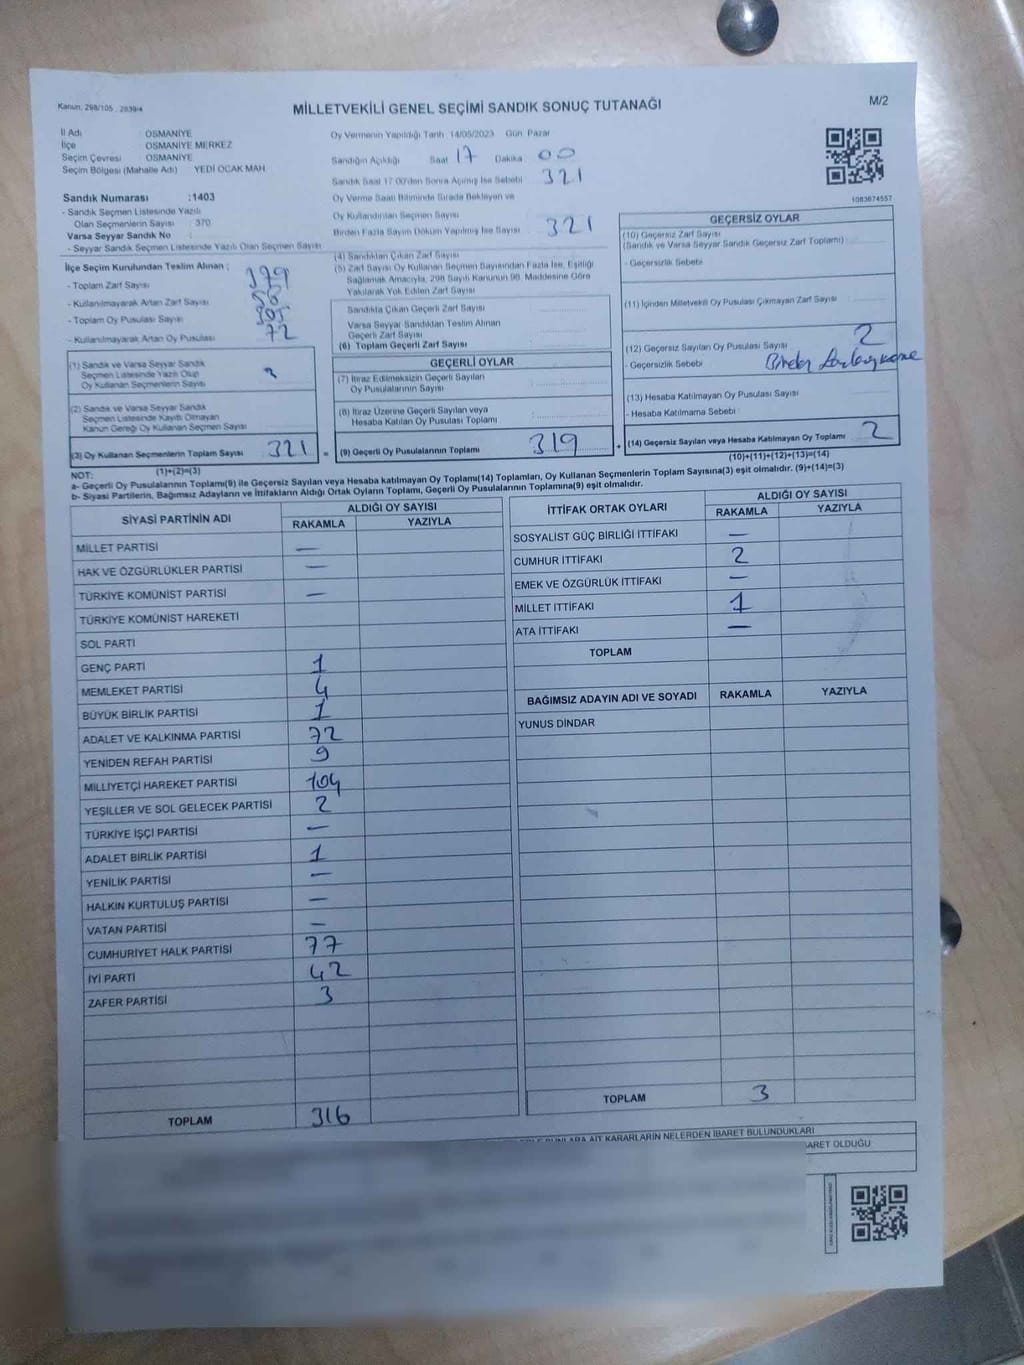 Kanun, 298/105 , 2839/4
MİLLETVEKİLİ GENEL SEÇİMİ SANDIK SONUÇ TUTANAĞI
M/2
İl Adı : OSMANİYE
İlçe : OSMANİYE MERKEZ
Seçim Çevresi : OSMANİYE
Seçim Bölgesi (Mahalle Adı) : YEDİ OCAK MAH
Oy Vermenin Yapıldığı Tarih 14/05/2023 Gün Pazar
Sandığın Açıldığı Saat 17 Dakika 00
Sandık Saat 17:00'den Sonra Açılmış İse Sebebi 321
Oy Verme Saati Bitiminde Sırada Bekleyen ve
Oy Kullandırılan Seçmen Sayısı
Birden Fazla Sayım Döküm Yapılmış İse Sayısı 321
1083674557
Sandık Numarası : 1403
- Sandık Seçmen Listesinde Yazılı
Olan Seçmenlerin Sayısı : 370
Varsa Seyyar Sandık No :
- Seyyar Sandık Seçmen Listesinde Yazılı Olan Seçmen Sayısı
İlçe Seçim Kurulundan Teslim Alınan ;
- Toplam Zarf Sayısı
- Kullanılmayarak Artan Zarf Sayısı
- Toplam Oy Pusulası Sayısı
- Kullanılmayarak Artan Oy Pusulası 72
(1) Sandık ve Varsa Seyyar Sandık
Seçmen Listesinde Yazılı Olup
Oy Kullanan Seçmenlerin Sayısı
(2) Sandık ve Varsa Seyyar Sandık
Seçmen Listesinde Kayıtlı Olmayan
Kanun Gereği Oy Kullanan Seçmen Sayısı
(3) Oy Kullanan Seçmenlerin Toplam Sayısı 321
(1)+(2)=(3)
(4) Sandıktan Çıkan Zarf Sayısı
(5) Zarf Sayısı Oy Kullanan Seçmen Sayısından Fazla İse, Eşitliği
Sağlamak Amacıyla, 298 Sayılı Kanunun 98. Maddesine Göre
Yakılarak Yok Edilen Zarf Sayısı
Sandıkta Çıkan Geçerli Zarf Sayısı
Varsa Seyyar Sandıktan Teslim Alınan
Geçerli Zarf Sayısı
(6) Toplam Geçerli Zarf Sayısı
GEÇERLİ OYLAR
(7) İtiraz Edilmeksizin Geçerli Sayılan
Oy Pusulalarının Sayısı
(8) İtiraz Üzerine Geçerli Sayılan veya
Hesaba Katılan Oy Pusulası Toplamı
= (9) Geçerli Oy Pusulalarının Toplamı 319
GEÇERSİZ OYLAR
(10) Geçersiz Zarf Sayısı
(Sandık ve Varsa Seyyar Sandık Geçersiz Zarf Toplamı)
- Geçersizlik Sebebi
(11) İçinden Milletvekili Oy Pusulası Çıkmayan Zarf Sayısı
(12) Geçersiz Sayılan Oy Pusulası Sayısı 2
- Geçersizlik Sebebi
(13) Hesaba Katılmayan Oy Pusulası Sayısı
- Hesaba Katılmama Sebebi
+ (14) Geçersiz Sayılan veya Hesaba Katılmayan Oy Toplamı 2
(10)+(11)+(12)+(13)=(14)
NOT:
a- Geçerli Oy Pusulalarının Toplamı(9) ile Geçersiz Sayılan veya Hesaba katılmayan Oy Toplamı(14) Toplamları, Oy Kullanan Seçmenlerin Toplam Sayısına(3) eşit olmalıdır. (9)+(14)=(3)
b- Siyasi Partilerin, Bağımsız Adayların ve İttifakların Aldığı Ortak Oyların Toplamı, Geçerli Oy Pusulalarının Toplamına(9) eşit olmalıdır.
SİYASİ PARTİNİN ADI
ALDIĞI OY SAYISI
RAKAMLA YAZIYLA
MİLLET PARTİSİ —
HAK VE ÖZGÜRLÜKLER PARTİSİ —
TÜRKİYE KOMÜNİST PARTİSİ —
TÜRKİYE KOMÜNİST HAREKETİ
SOL PARTİ
GENÇ PARTİ 1
MEMLEKET PARTİSİ 4
BÜYÜK BİRLİK PARTİSİ 1
ADALET VE KALKINMA PARTİSİ 72
YENİDEN REFAH PARTİSİ 9
MİLLİYETÇİ HAREKET PARTİSİ 104
YEŞİLLER VE SOL GELECEK PARTİSİ 2
TÜRKİYE İŞÇİ PARTİSİ —
ADALET BİRLİK PARTİSİ 1
YENİLİK PARTİSİ —
HALKIN KURTULUŞ PARTİSİ —
VATAN PARTİSİ —
CUMHURİYET HALK PARTİSİ 77
İYİ PARTİ 42
ZAFER PARTİSİ 3
TOPLAM 316
İTTİFAK ORTAK OYLARI
ALDIĞI OY SAYISI
RAKAMLA YAZIYLA
SOSYALİST GÜÇ BİRLİĞİ İTTİFAKI —
CUMHUR İTTİFAKI 2
EMEK VE ÖZGÜRLÜK İTTİFAKI —
MİLLET İTTİFAKI 1
ATA İTTİFAKI —
TOPLAM
BAĞIMSIZ ADAYIN ADI VE SOYADI RAKAMLA YAZIYLA
YUNUS DİNDAR
TOPLAM 3
AİT KARARLARIN NELERDEN İBARET BULUNDUKLARI
OLDUĞU